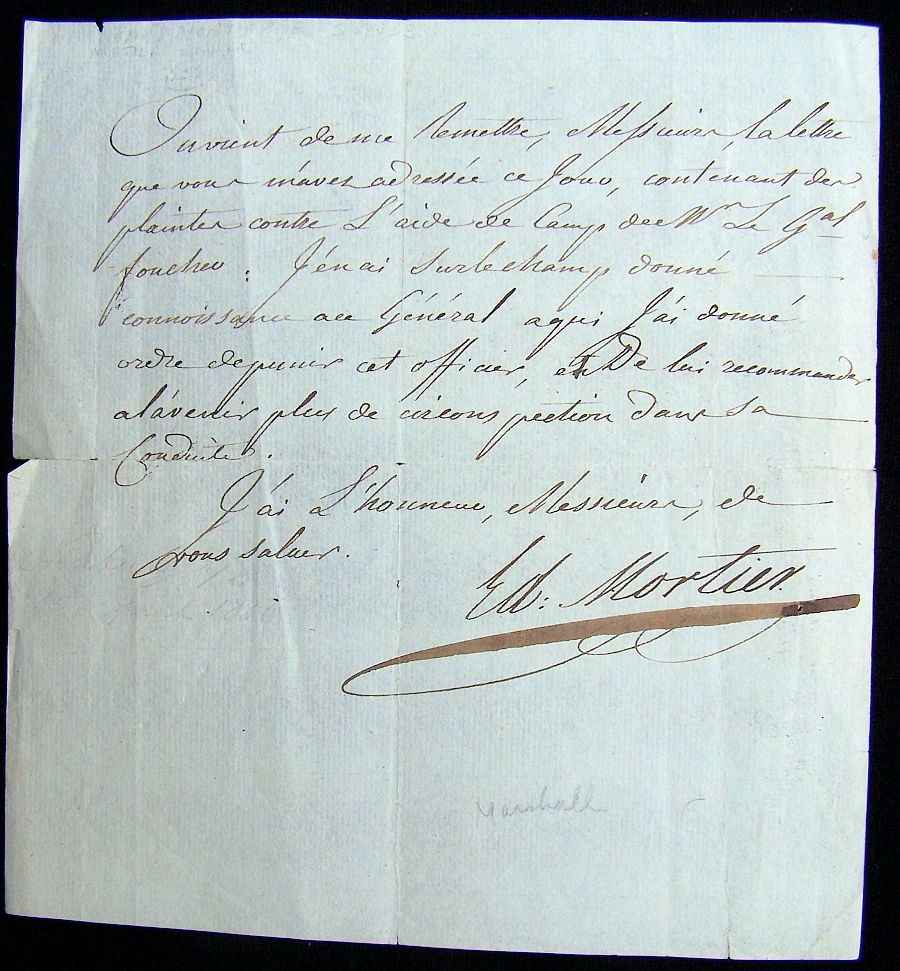 On vient de me Remettre, Messieurs, la lettre
que vous m'avez adressée ce Jour, contenant des
plaintes contre L'aide de Camp de Mr Le Gal
foucher. J'en ai sur le champ donné
connoissance au Général a qui J'ai donné
ordre de punir cet officier, et De lui recommander
a l'avenir plus de circonspection dans sa
Conduite.
J'ai L'honneur, Messieurs, de
vous saluer.
Ed. Mortier
Marshall